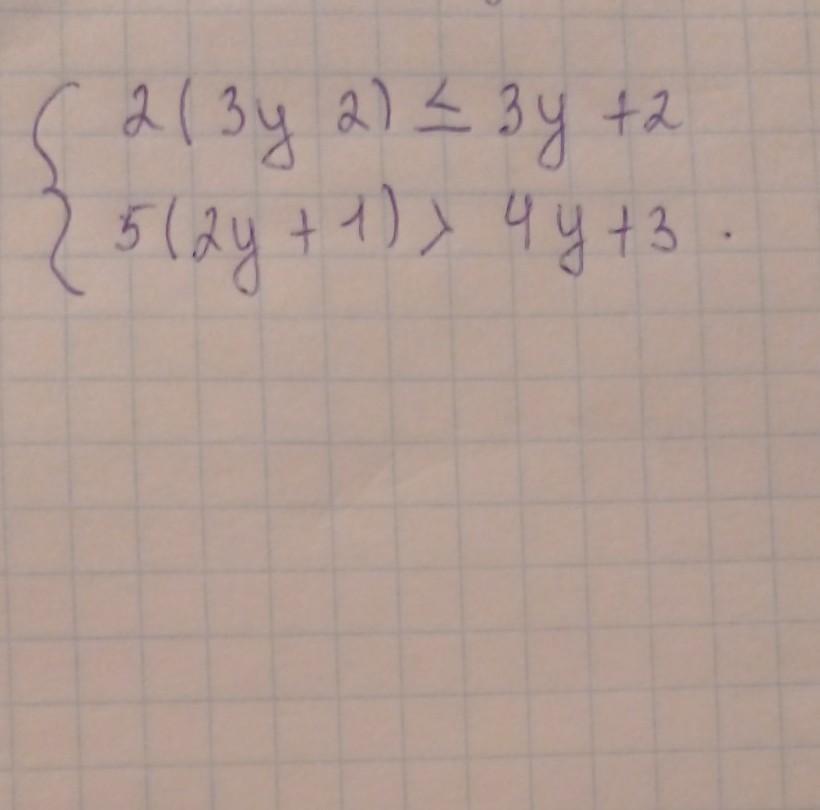 2(3y 2) ≤ 3y +2
5(2y + 1) > 4y + 3 .